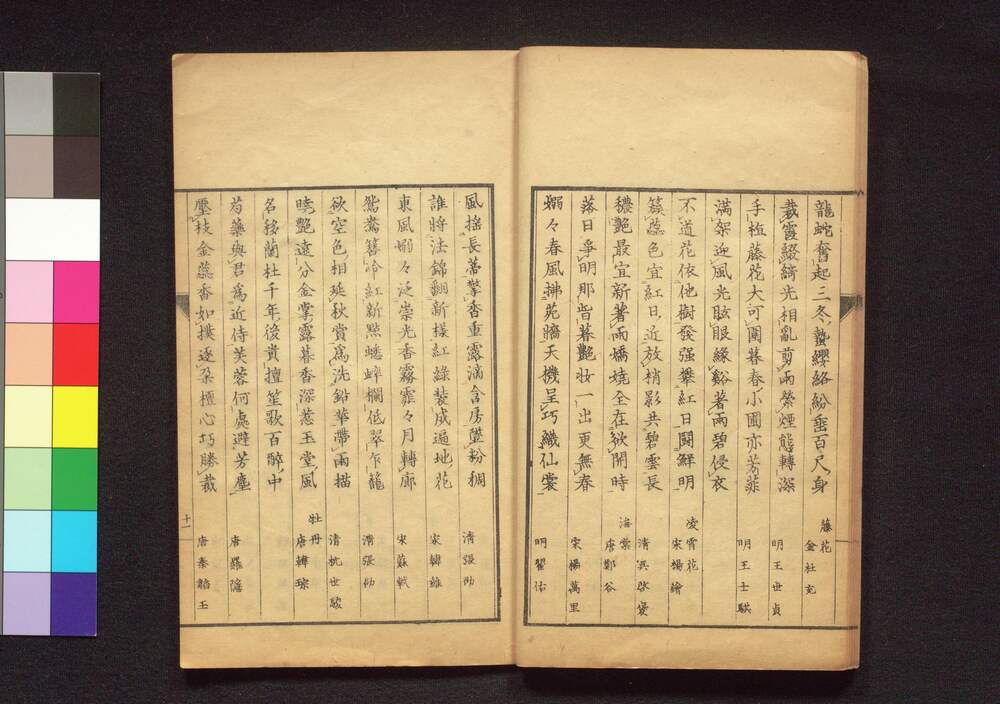 龍蛇奮起三冬蟄纓絡紛垂百尺身 藤花 金杜充
裁霞綴綺光相亂剪雨縈煙態轉深 明王世貞
手植藤花大可圍暮春小圃亦芳菲 明王士騏
滿架迎風光眩眼緣谿著雨碧侵衣
不道花依他樹發强攀紅日鬪鮮明 凌霄花 宋楊繪
簇蕊色宜紅日近放梢影共碧雲長 清吳啓褒
穠艷最宜新著雨嬌嬈全在欲開時 海棠 唐鄭谷
落日爭明那肯暮艷妝一出更無春 宋楊萬里
嫋々春風拂苑牆天機呈巧織仙裳 明瞿佑
風搖長蒂擎香重露滴含房墮粉稠 清張劭
誰將法錦翻新樣紅綠裝成遍地花 宋韓維
東風嫋々泛崇光香霧霏々月轉廊 宋蘇軾
鴛鴦簪冷紅新點蟋蟀欄低翠乍籠 清張劭
欲空色相延秋賞爲洗鉛華帶雨描 清杭世駿
曉艷遠分金掌露暮香深惹玉堂風 牡丹 唐韓琮
名移蘭杜千年後貴擅笙歌百醉中
芍藥與君爲近侍芙蓉何處避芳塵 唐羅隱
壓枝金蕊香如撲逐朶檀心巧勝裁 唐秦韜玉
十一